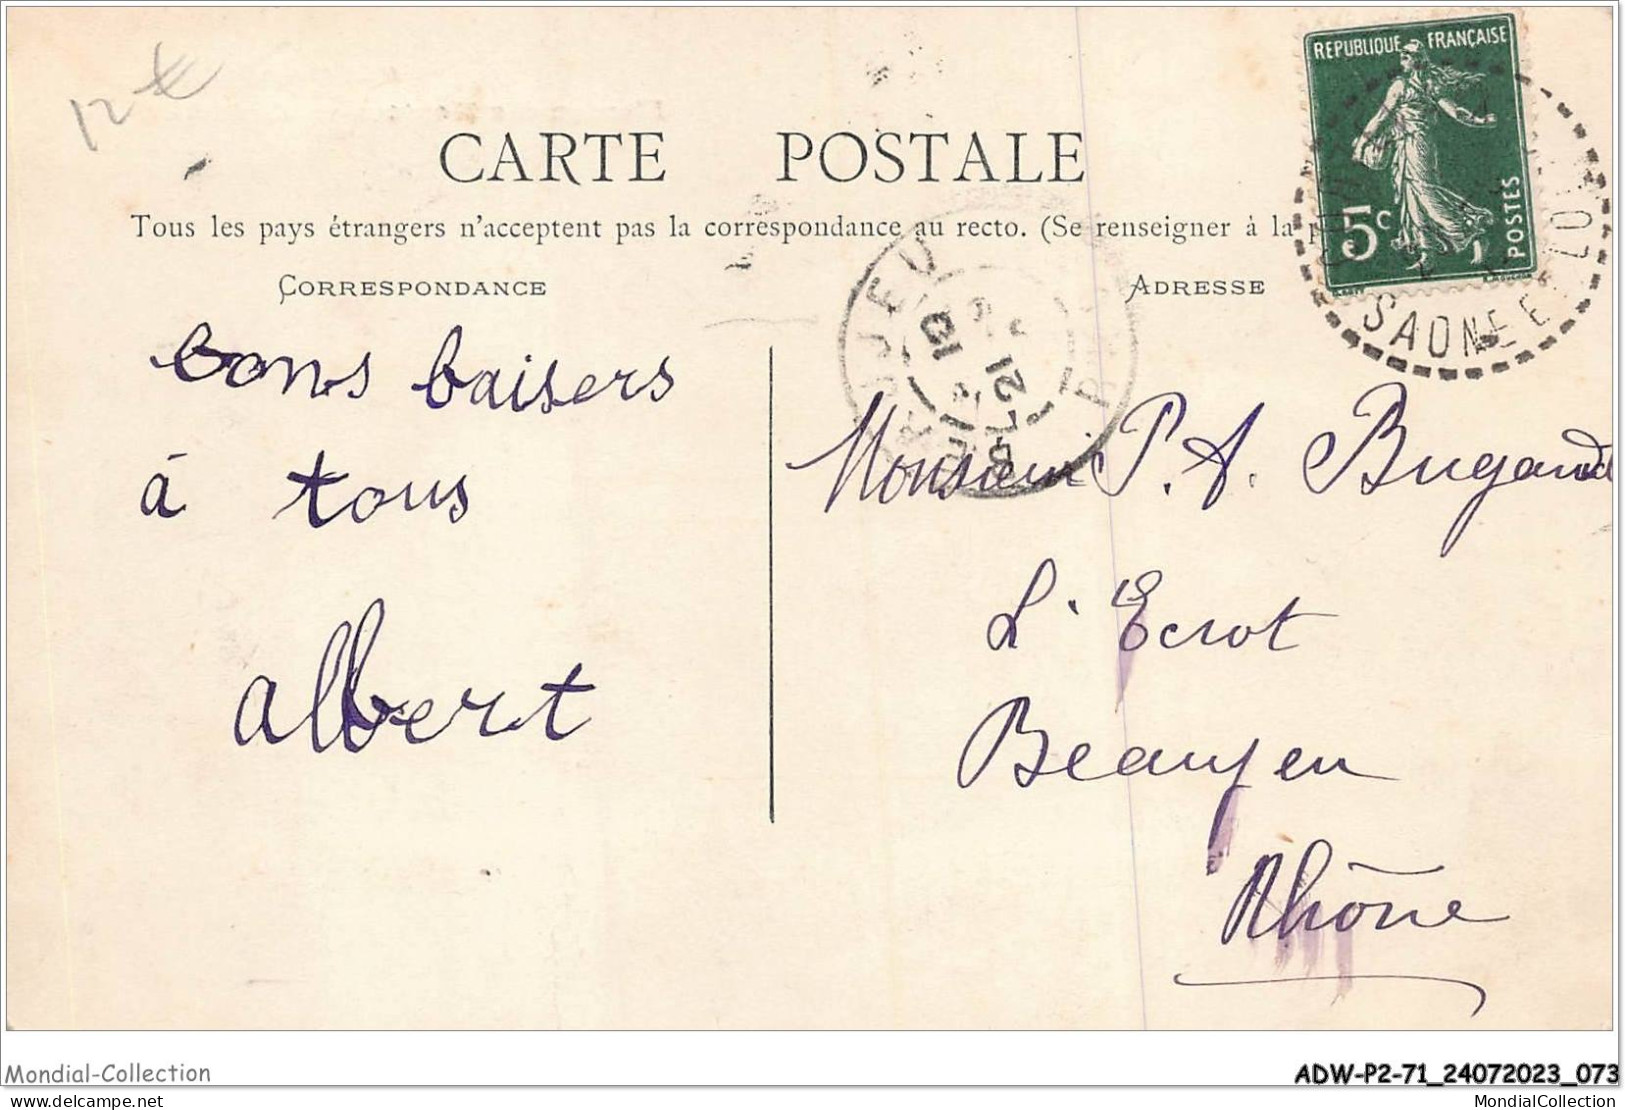 12 €
REPUBLIQUE FRANÇAISE
5c
POSTES
SAONE ET LOI
CARTE POSTALE
Tous les pays étrangers n'acceptent pas la correspondance au recto. (Se renseigner à la p
CORRESPONDANCE
ADRESSE
JEU
13
12
bons baisers
à tous
albert
Monsieur P. A. Bugand
L'Ecrot
Beaujeu
Rhône
Mondial-Collection
ADW-P2-71_24072023_073
delcampe.net
MondialCollection